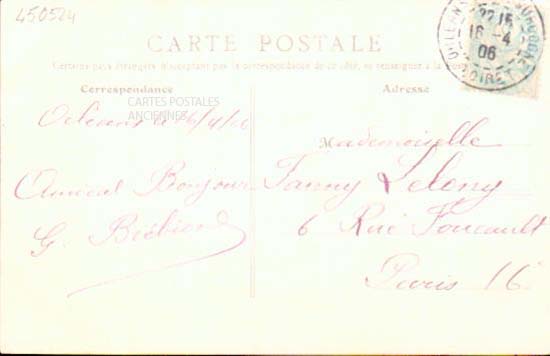 450524
CARTE POSTALE
Certains pays étrangers n'acceptant pas la correspondance de ce côté, se renseigner à la poste
Correspondance
Adresse
CARTES POSTALES
ANCIENNES
Orléans 16/4/06
Amical Bonjour
G.
Mademoiselle
Fanny Lelong
6 Rue Foucault
Paris 16e
22 15
16 - 4
06
LOIRET